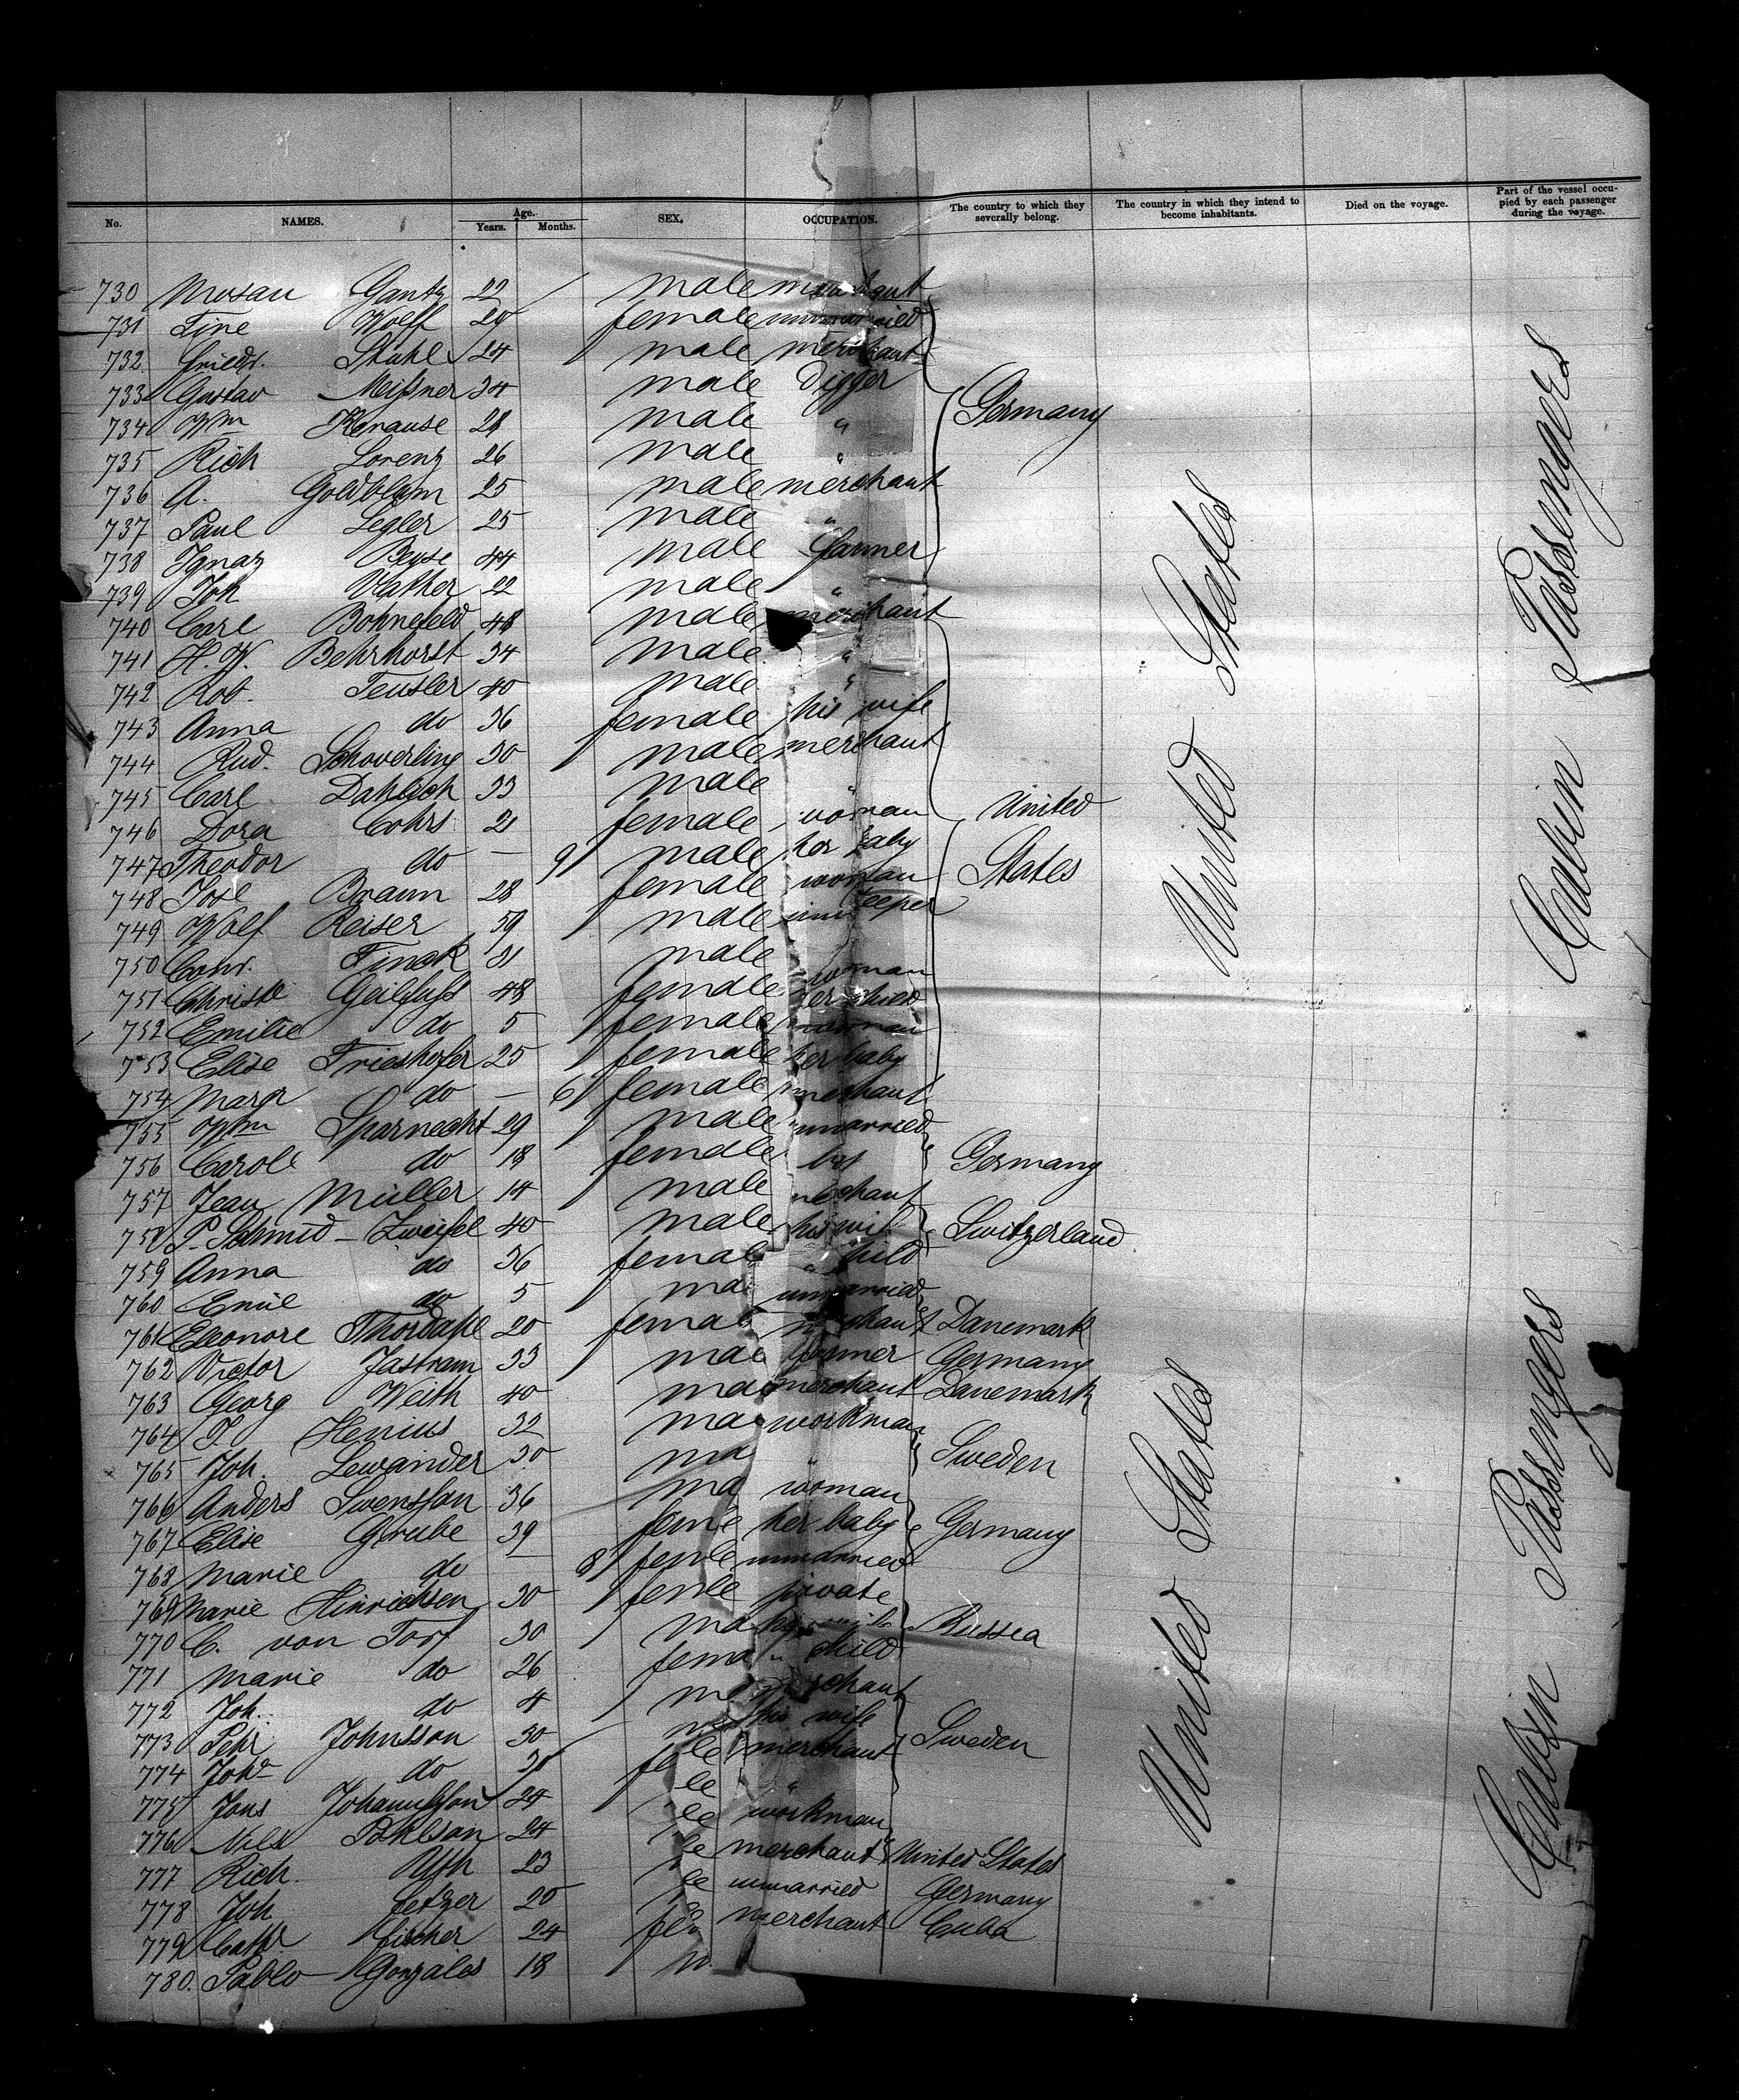 No. NAMES. Age. Years. Months. SEX. OCCUPATION. The country to which they severally belong. The country in which they intend to become inhabitants. Died on the voyage. Part of the vessel occupied by each passenger during the voyage.
730 Gantz 22 male merchant
731 Tine Wolff 20 female unmarried
732 Friedr. Stahl 24 male merchant
733 Gustav Meißner 34 male Digger
734 Wm Krause 28 male " Germany
735 Rich Lorenz 26 male "
736 A. Goldblum 25 male merchant
737 Paul Legler 25 male "
738 Ignaz Beyse 44 male farmer
739 Joh Vather 22 male "
740 Carl Bohnefeld 48 male merchant
741 H. W. Behrhorst 34 male "
742 Rob. Teusler 40 male "
743 Anna do 36 female his wife
744 Rud. Schoverling 30 male merchant
745 Carl 33 male "
746 Dora Cohrs 21 female woman United
747 Theodor do — 9 male her baby
748 Braun 28 female woman States
749 Wolf Reiser 59 male keeper
750 Conr. Finck 31 male
751 Christe Geilfuß 48 female woman
752 Emilie do 5 female her child
753 Elise Frieshofer 25 female woman
754 Margr do — 6 female her baby
755 Wm Sparnecht 29 male merchant
756 Carole do 18 female unmarried Germany
757 Jean Müller 14 male boy
758 P. Schmid-Zweifel 40 male merchant Switzerland
759 Anna do 36 female his wife
760 Emil do 5 ma " child
761 Eleonore Thordahl 20 female unmarried Danemark
762 Victor Jastram 33 male merchant Germany
763 Georg Weith 40 ma farmer Danemark
764 T. Henius 32 ma merchant
765 Joh. Lewander 30 ma workman Sweden
766 Anders Swensson 36 ma "
767 Elise Grube 39 female woman Germany
768 Marie do — 8 female her baby
769 Marie Hinrichsen 30 female unmarried
770 C. von Torf 30 ma private Russia
771 Marie do 26 fema his wife
772 Joh. do 4 m " child
773 Pehr Johnsson 30 merchant Sweden
774 Joh do fe le his wife
775 Jons Johannsson 24 le merchant
776 Nils Pohlson 24 le "
777 Rich. Uth 23 le workman
778 Joh Fetzer 20 le merchant United States
779 Cathr Fischer 24 fe unmarried Germany
780. Pablo Gonzales 18 m merchant Cuba
United States
United States
Cabin Passengers
Cabin Passengers